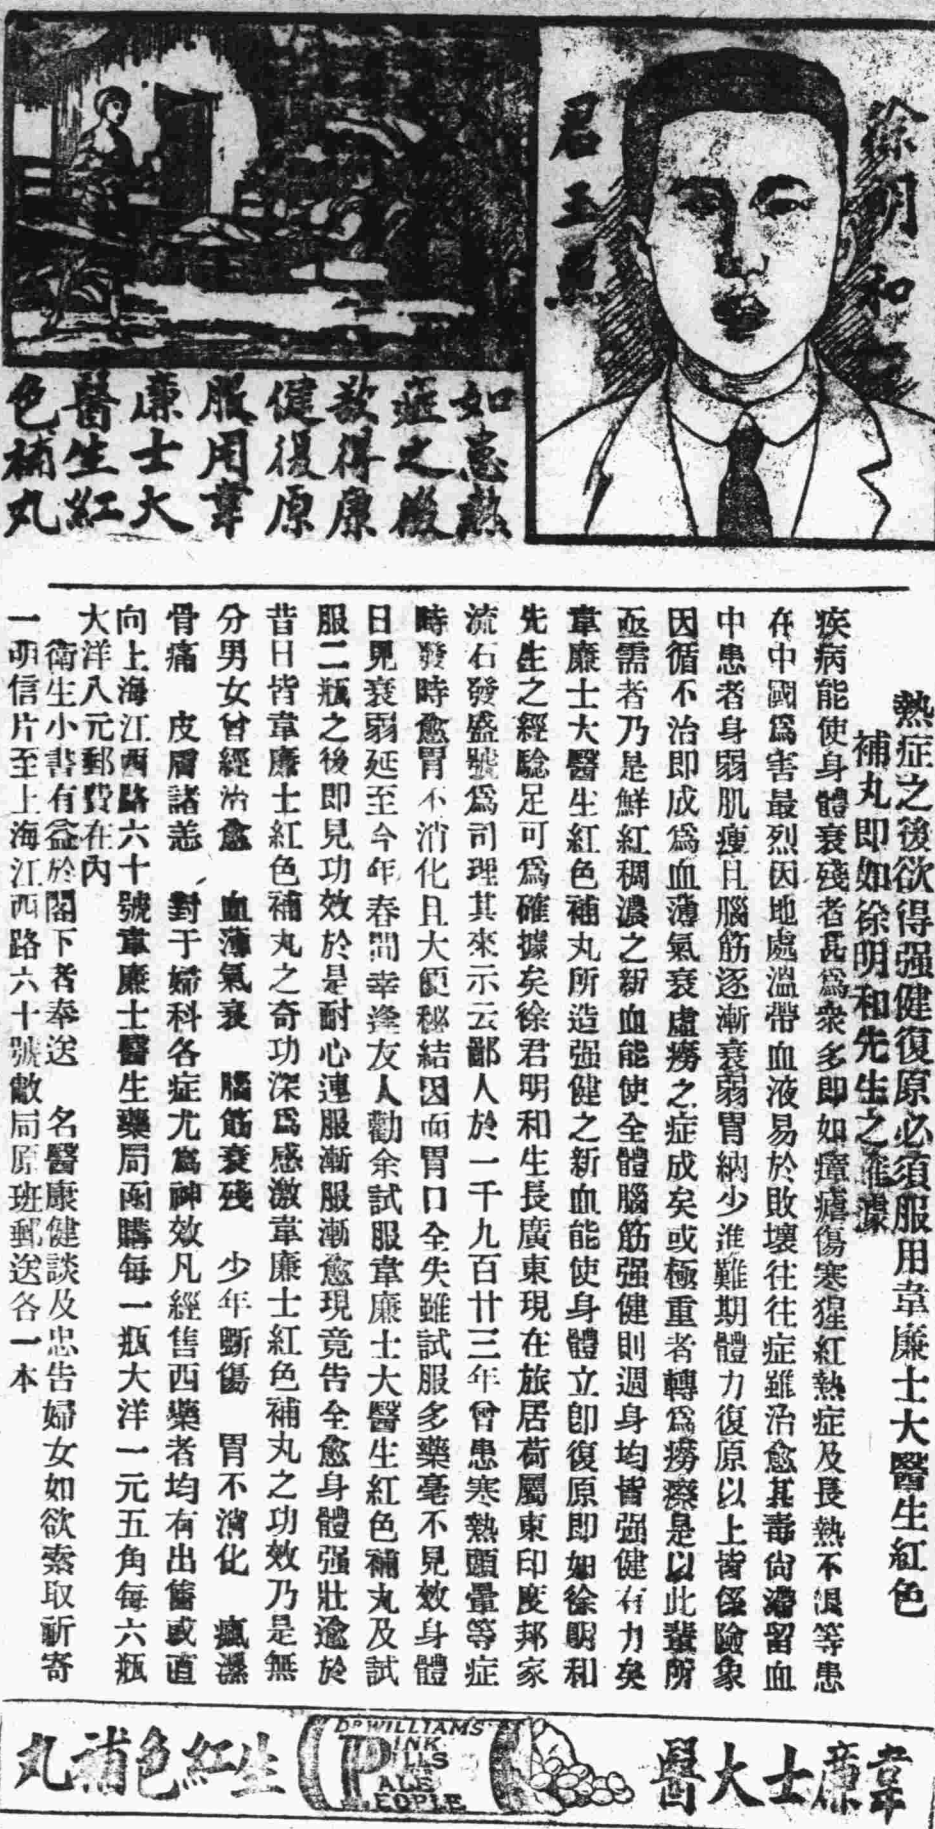 徐明和
君玉照
如患熱
症之後
欲得康
健復原
服用韋
廉士大
醫生紅
色補丸
熱症之後欲得强健復原必須服用韋廉士大醫生紅色
補丸即如徐明和先生之確據
疾病能使身體衰殘者甚爲衆多即如瘴瘧傷寒猩紅熱症及長熱不退等患
在中國爲害最烈因地處溫帶血液易於敗壞往往症雖治愈其毒尙滯留血
中患者身弱肌瘦且腦筋逐漸衰弱胃納少進難期體力復原以上皆係險象
因循不治即成爲血薄氣衰虛癆之症成矣或極重者轉爲癆瘵是以此輩所
亟需者乃是鮮紅稠濃之新血能使全體腦筋强健則週身均皆强健有力矣
韋廉士大醫生紅色補丸所造强健之新血能使身體立卽復原即如徐明和
先生之經騐足可爲確據矣徐君明和生長廣東現在旅居荷屬東印度邦家
流石發盛號爲司理其來示云鄙人於一千九百廿三年曾患寒熱頭暈等症
時發時愈胃不消化且大便秘結因而胃口全失雖試服多藥毫不見效身體
日見衰弱延至今年春間幸逢友人勸余試服韋廉士大醫生紅色補丸及試
服二瓶之後即見功效於是耐心連服漸服漸愈現竟告全愈身體强壯逾於
昔日皆韋廉士紅色補丸之奇功深爲感激韋廉士紅色補丸之功效乃是無
分男女曾經治愈　血薄氣衰　腦筋衰殘　少年斲傷　胃不消化　瘋濕
骨痛　皮膚諸恙　對于婦科各症尤爲神效凡經售西藥者均有出售或直
向上海江西路六十號韋廉士醫生藥局函購每一瓶大洋一元五角每六瓶
大洋八元郵費在內
衛生小書有益於閣下者奉送　名醫康健談及忠告婦女如欲索取祈寄
一明信片至上海江西路六十號敝局原班郵送各一本
韋廉士大醫
DR WILLIAMS'
PINK
PILLS
PALE
PEOPLE
生紅色補丸